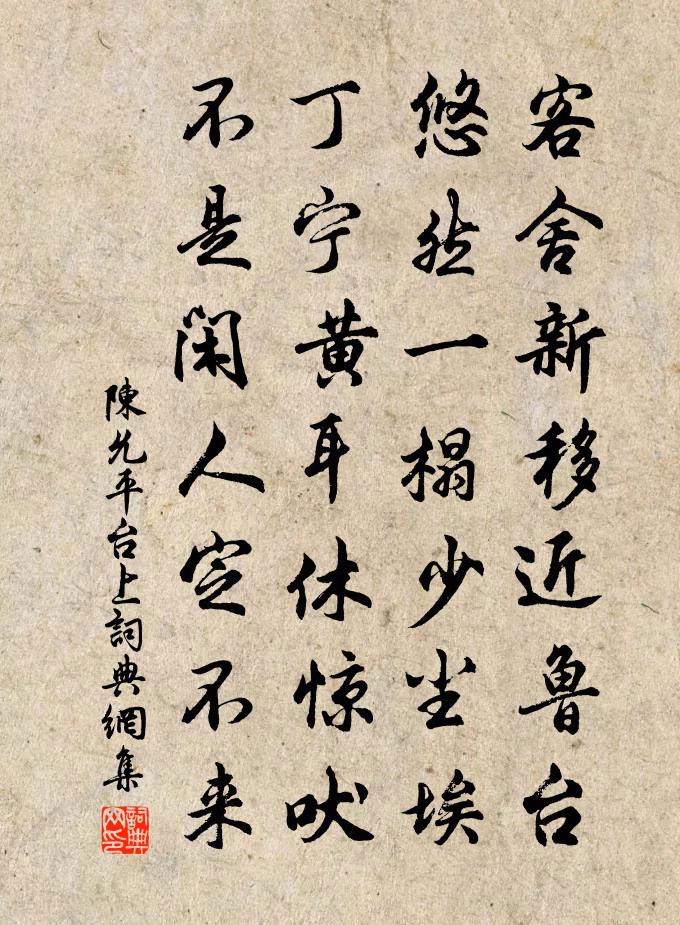 客舍新移近鲁台
悠然一榻少尘埃
丁宁黄耳休惊吠
不是闲人定不来
陳允平台上詞典網集
詞典網印